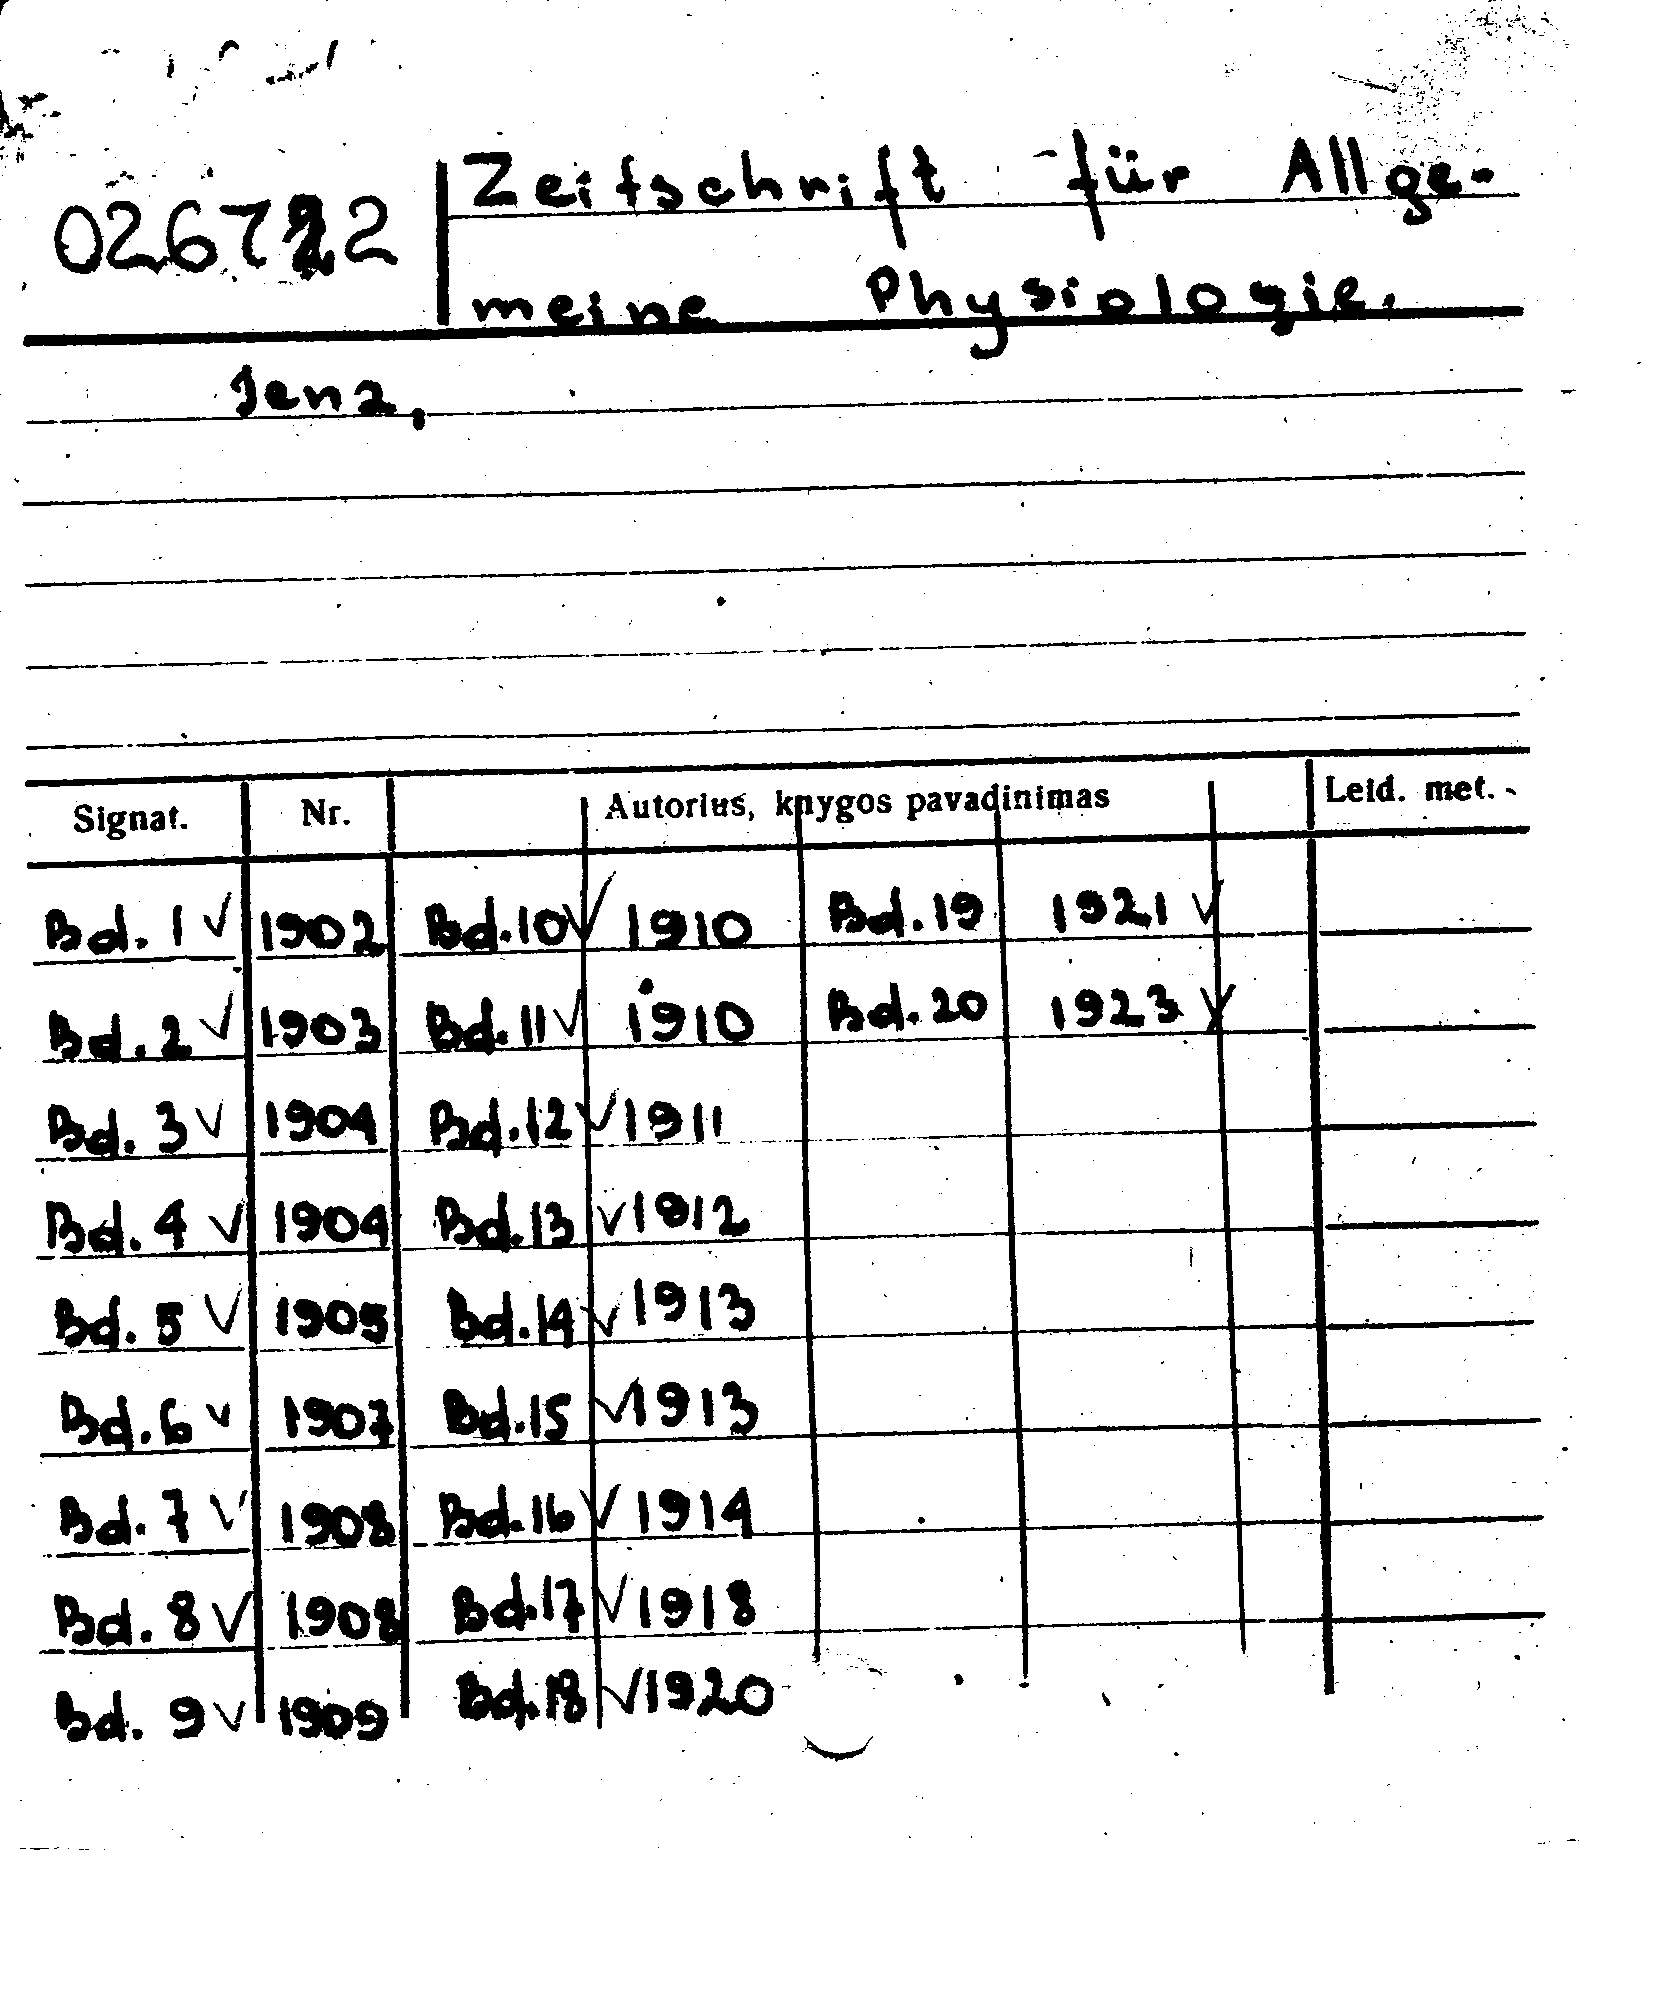 Zeitschrift für Allge-
meine Physiologie.
Jena,
Signat. Nr. Autorius, knygos pavadinimas Leid. met.
Bd. 1 √ 1902 Bd. 10 √ 1910 Bd. 19 1921 √
Bd. 2 √ 1903 Bd. 11 √ 1910 Bd. 20 1923 √
Bd. 3 √ 1904 Bd. 12 √ 1911
Bd. 4 √ 1904 Bd. 13 √ 1912
Bd. 5 √ 1905 Bd. 14 √ 1913
Bd. 6 √ 1907 Bd. 15 √ 1913
Bd. 7 √ 1908 Bd. 16 √ 1914
Bd. 8 √ 1908 Bd. 17 √ 1918
Bd. 9 √ 1909 Bd. 18 √ 1920